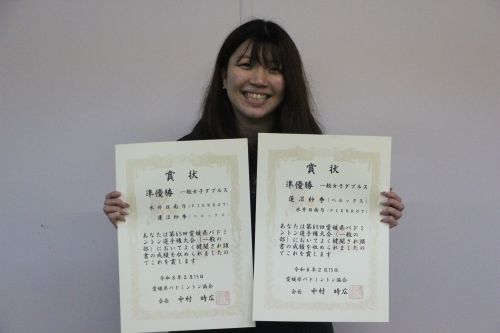 賞状
準優勝 一般女子ダブルス
永井日南乃(PIERROT)
蓮沼紗季(ベロックス)
あなたは第65回愛媛県バドミ
ントン選手権大会(一般の
部)において健闘され頭
書の成績を収められました
のでこれを賞します
令和8年2月15日
愛媛県バドミントン協会
会長 中村 時広
賞状
準優勝 一般女子ダブルス
蓮沼紗季(ベロックス)
永井日南乃(PIERROT)
あなたは第65回愛媛県バドミ
ントン選手権大会(一般の
部)において健闘され頭
書の成績を収められました
のでこれを賞します
令和8年2月15日
愛媛県バドミントン協会
会長 中村 時広